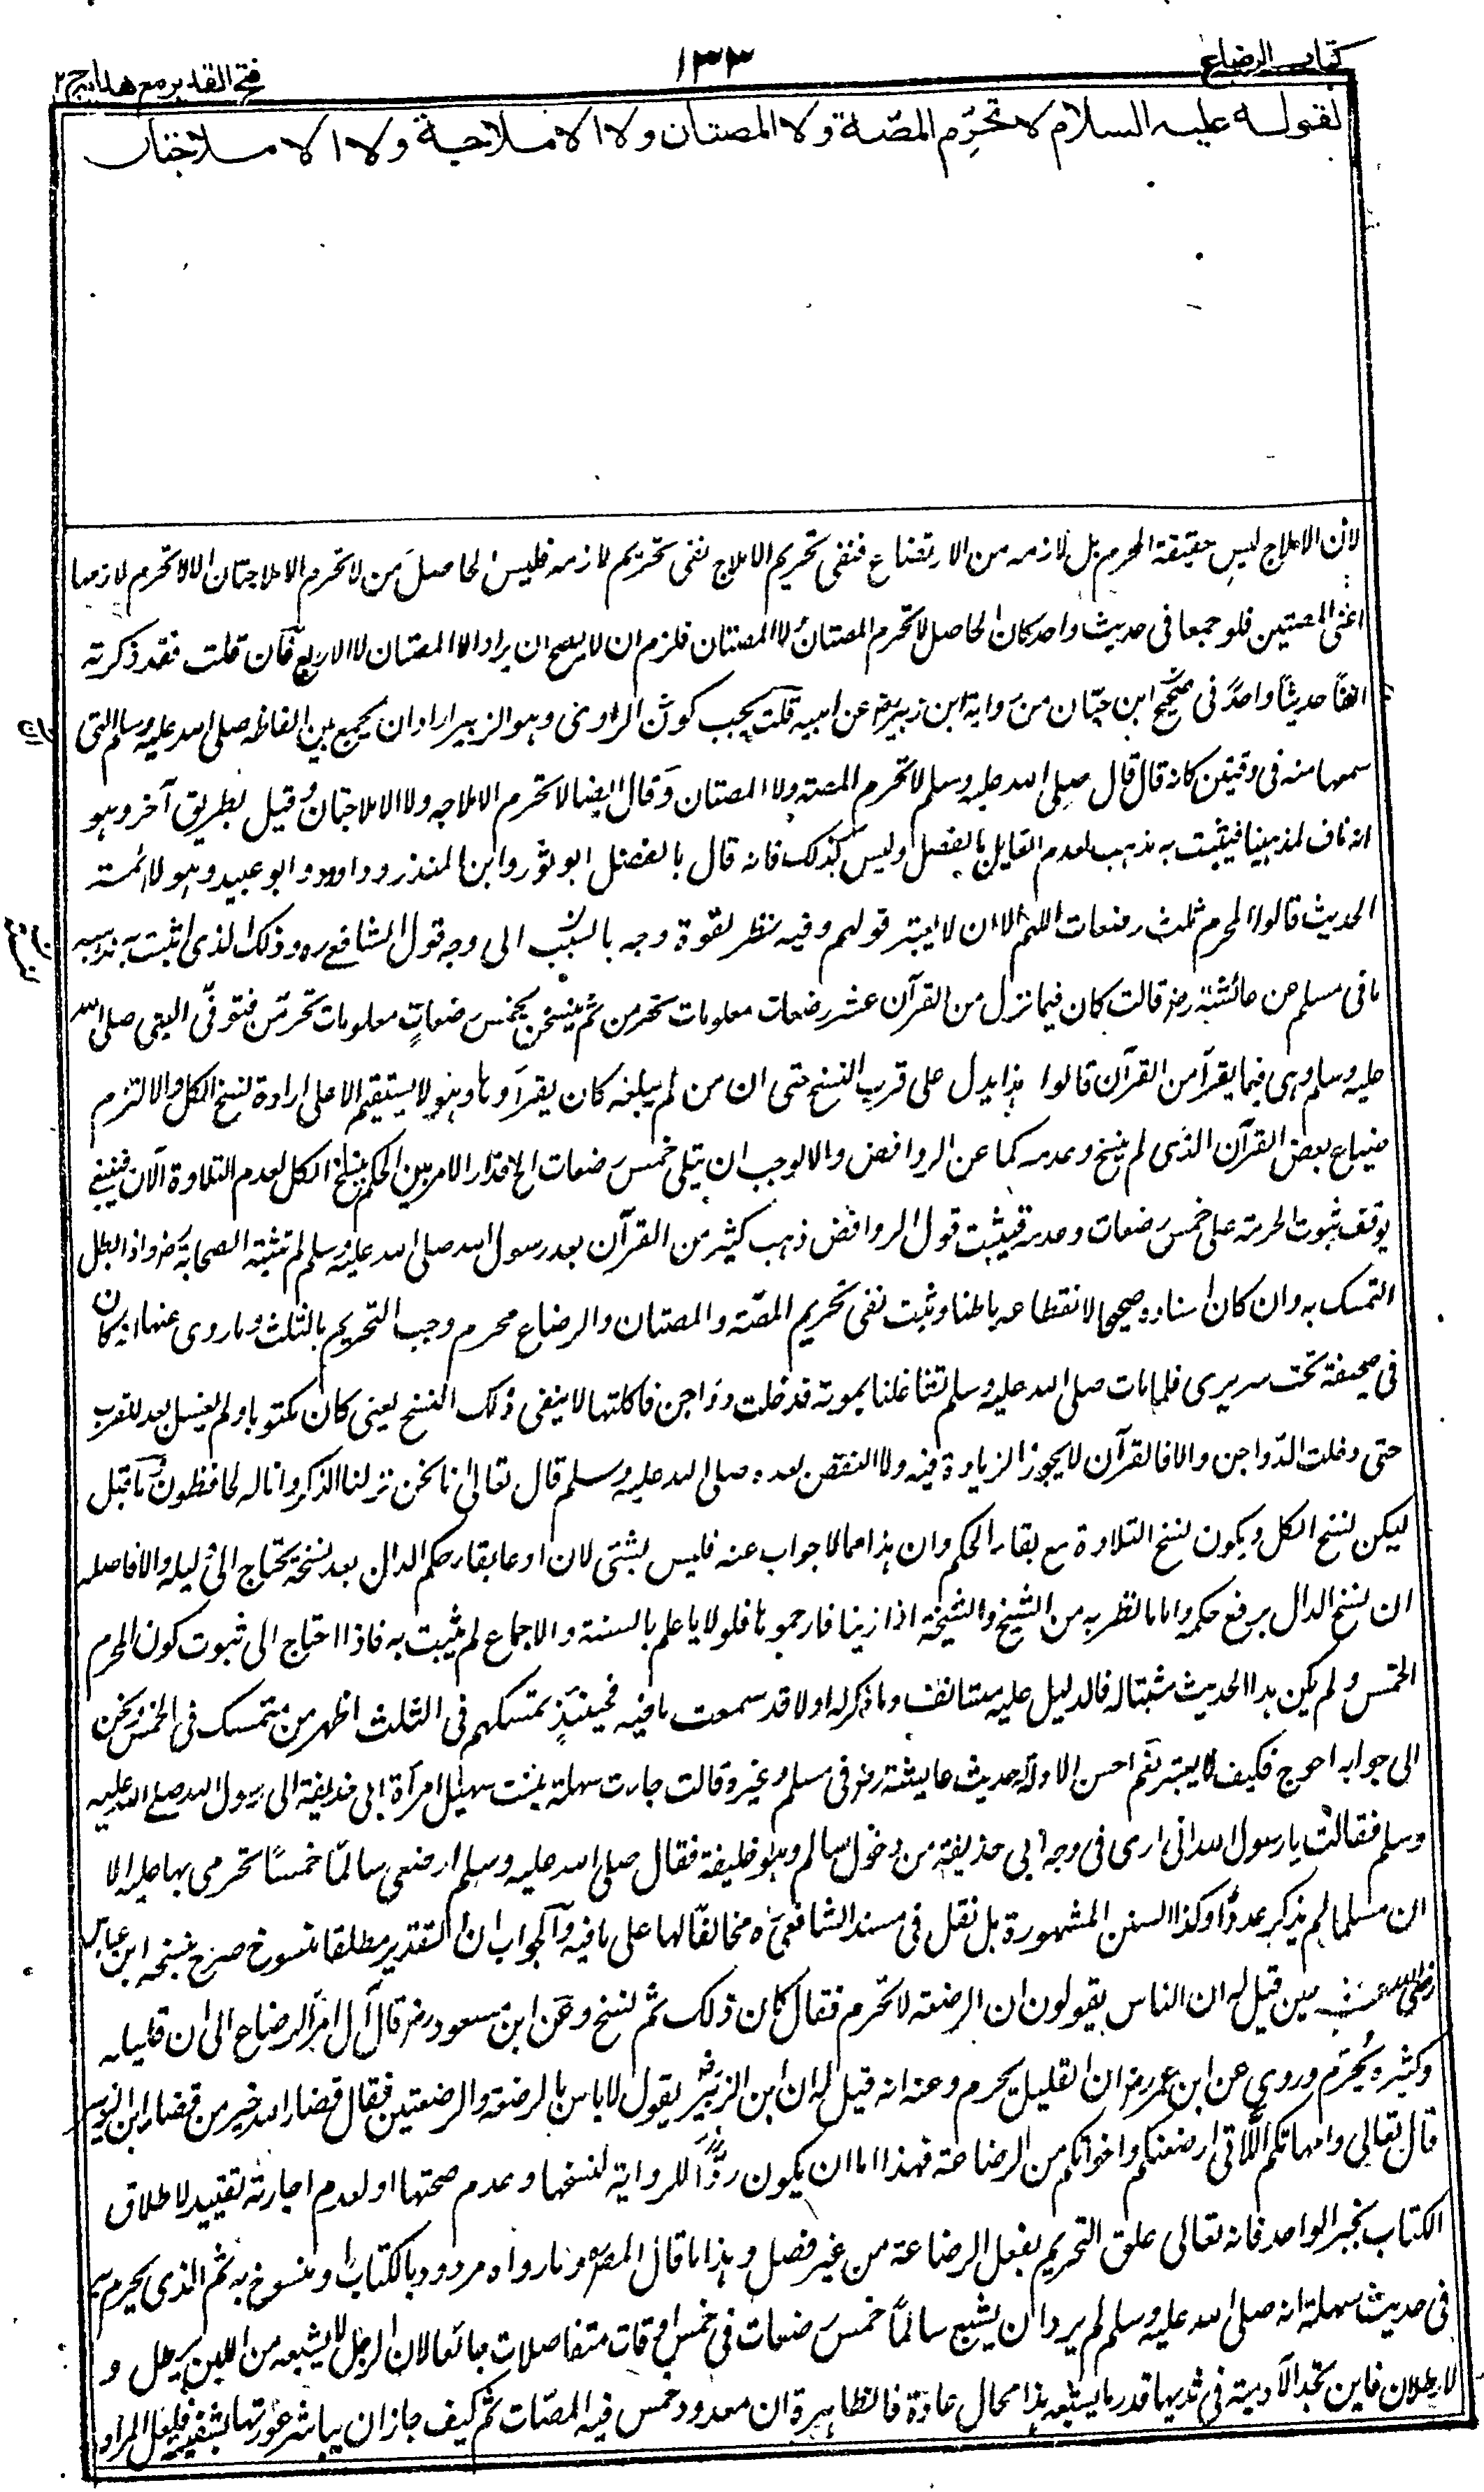 كتاب الرضاع
١٣٣
فتح القدير مع هدايه ج ٢
لقوله عليه السلام لا تحرّم المصّة ولا المصتان ولا الاملاجة ولا الاملاجتان
لان الاملاج ليس حقيقة المحرم بل لازمه من الارتضاع فنفى تحريم الاملاج نفى تحريم لازمه فليس الحاصل من لا تحرم الاملاجتان الا لا تحرم لازمها
اعنى المصتين فلو جمعا فى حديث واحد كان الحاصل لا تحرم المصتان ولا المصتان فلزم ان لا يصح ان يراد الا المصتان لا الاربع فان قلت فقد ذكرته
انفًا حديثًا واحدًا فى صحيح ابن حبّان من رواية ابن زبير رض عن ابيه قلت يجب كون الراوى وهو الزبير اراد ان يجمع بين الفاظه صلى الله عليه وسلم التى
سمعها منه فى وقتين كانه قال قال صلى الله عليه وسلم لا تحرم المصة ولا المصتان وقال ايضا لا تحرم الاملاجه ولا الاملاجتان وقيل بطريق آخر وهو
انه ناف لمذهبنا فيثبت به مذهب لعدم القايل بالفصل وليس كذلك فانه قال بالفصل ابو ثور وابن المنذر وداوود وابو عبيد وهولا ائمة
الحديث قالوا المحرم ثلث رضعات اللهم الا ان لا يعتبر قولهم وفيه نظر لقوة وجه بالنسبة الى وجه قول الشافعى ره وذلك الذى اثبت به مذهبه
ما فى مسلم عن عائشة رض قالت كان فيما نزل من القرآن عشر رضعات معلومات تحرمن ثم نسخن بخمس رضعاتٍ معلومات تحرمن فتوفّى النبى صلى الله
عليه وسلم وهى فيما يقرأ من القرآن قالوا هذا يدل على قرب النسخ حتى ان من لم يبلغه كان يقرأوها وهو لا يستقيم الا على ارادة نسخ الكل والا لزم
ضياع بعض القرآن الذى لم ينسخ وعدمه كما عن الروافض والا لوجب ان يتلى خمس رضعات الخ فدار الامر بين الحكم بنسخ الكل لعدم التلاوة الآن فينبغى
توقف ثبوت الحرمة على خمس رضعات وعدمه فيثبت قول الروافض ذهب كثير من القرآن بعد رسول الله صلى الله عليه وسلم لم تثبته الصحابة رض واذ ابطل
التمسك به وان كان اسناده صحيحا لانقطاعه باطنا وثبت نفى تحريم المصّة والمصتان والرضاع محرم وجب التحريم بالثلث وما روى عنها انه كان
فى صحيفة تحت سريرى فلما مات صلى الله عليه وسلم تشاغلنا بموته فدخلت دواجن فاكلتها لا ينفى ذلك النسخ يعنى كان مكتوبا ولم يغسل بعد للقرب
حتى دخلت الدّواجن والا فالقرآن لا يجوز الزيادة فيه ولا النقص بعده صلى الله عليه وسلم قال تعالى انا نحن نزلنا الذكر وانا له لحافظون وما قبل
ليكن نسخ الكل ويكون نسخ التلاوة مع بقاء الحكم وان هذا مما لا جواب عنه فليس بشئى لان ادعا بقاء حكم الدال بعد نسخه يحتاج الى دليل والا فاصله
ان نسخ الدال يرفع حكمه واما ما نظر به من الشيخ والشيخة اذا زنيا فارجموهما فلولا ما علم بالسنة والاجماع لم يثبت به فاذا احتاج الى ثبوت كون المحرم
الخمس ولم يكن هذا الحديث مثبتا له فالدليل عليه مستانف وما ذكر له اولا قد سمعت ما فيه فحينئذٍ تمسكهم فى الثلث اظهر من متمسك فى الخمس ونحن
الى جوابه احوج فكيف لا يعتبر نعم احسن الادلة حديث عايشة رض فى مسلم وغيره قالت جاءت سهلة بنت سهيل امرأة ابى حذيفة الى رسول الله صلى الله عليه
وسلم فقالت يا رسول الله انى ارى فى وجه ابى حذيفة من دخول سالم وهو حليفه فقال صلى الله عليه وسلم ارضعى سالمًا خمسًا تحرمى بها عليه الا
ان مسلما لم يذكر عددًا وكذا السنن المشهورة بل نقل فى مسند الشافعى ره مخالفًا لها على ما فيه والجواب ان التقدير مطلقا منسوخ صرح بنسخه ابن عباس
رضى الله عنهما حين قيل له ان الناس يقولون ان الرضعة لا تحرم فقال كان ذلك ثم نسخ وعن ابن مسعود رض قال آل امر الرضاع الى ان قليله
وكثيره يُحرّم وروى عن ابن عمر رض ان القليل يحرم وعنه انه قيل له ان ابن الزبير رض يقول لا باس بالرضعة والرضعتين فقال قضاء الله خير من قضاء ابن الزبير
قال تعالى وامهاتكم اللّاتى ارضعنكم واخواتكم من الرضاعة فهذا اما ان يكون ردًّا للرواية لنسخها وعدم صحتها او لعدم اجازته تقييد لاطلاق
الكتاب بخبر الواحد فانه تعالى علق التحريم بفعل الرضاعة من غير فصل وهذا ما قال المصره وما رواه مردود بالكتاب او منسوخ به ثم الذى يحرم به
فى حديث سهلة انه صلى الله عليه وسلم لم يرد ان يشبع سالمًا خمس رضعات فى خمس اوقات متفاصلات جائعا لان الرجل لا يشبعه من اللبن رطل و
لا رطلان فاين تجد الآدمية فى ثديها قدر ما يشبعه هذا محال عادة فالظاهرة ان معدود خمس فيه المصّات ثم كيف جاز ان يباشر عورتها بشفتيه فلعل المراد